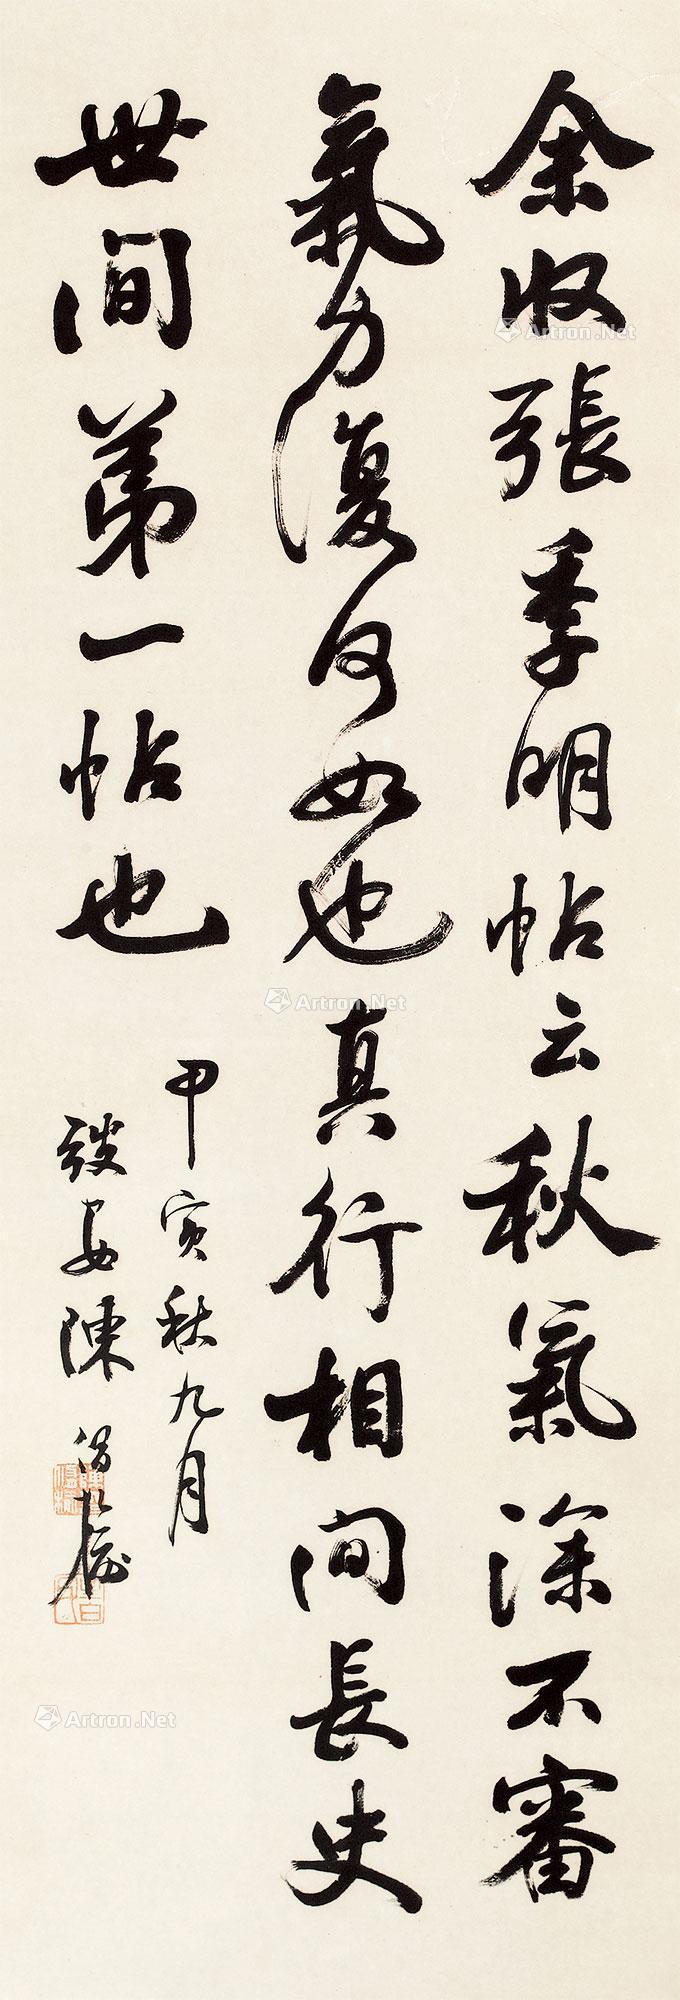 余收張季明帖云秋氣深不審
氣力復何如也真行相間長史
世間第一帖也
甲寅秋九月
陳
Artron.Net
Artron.Net
Artron.Net